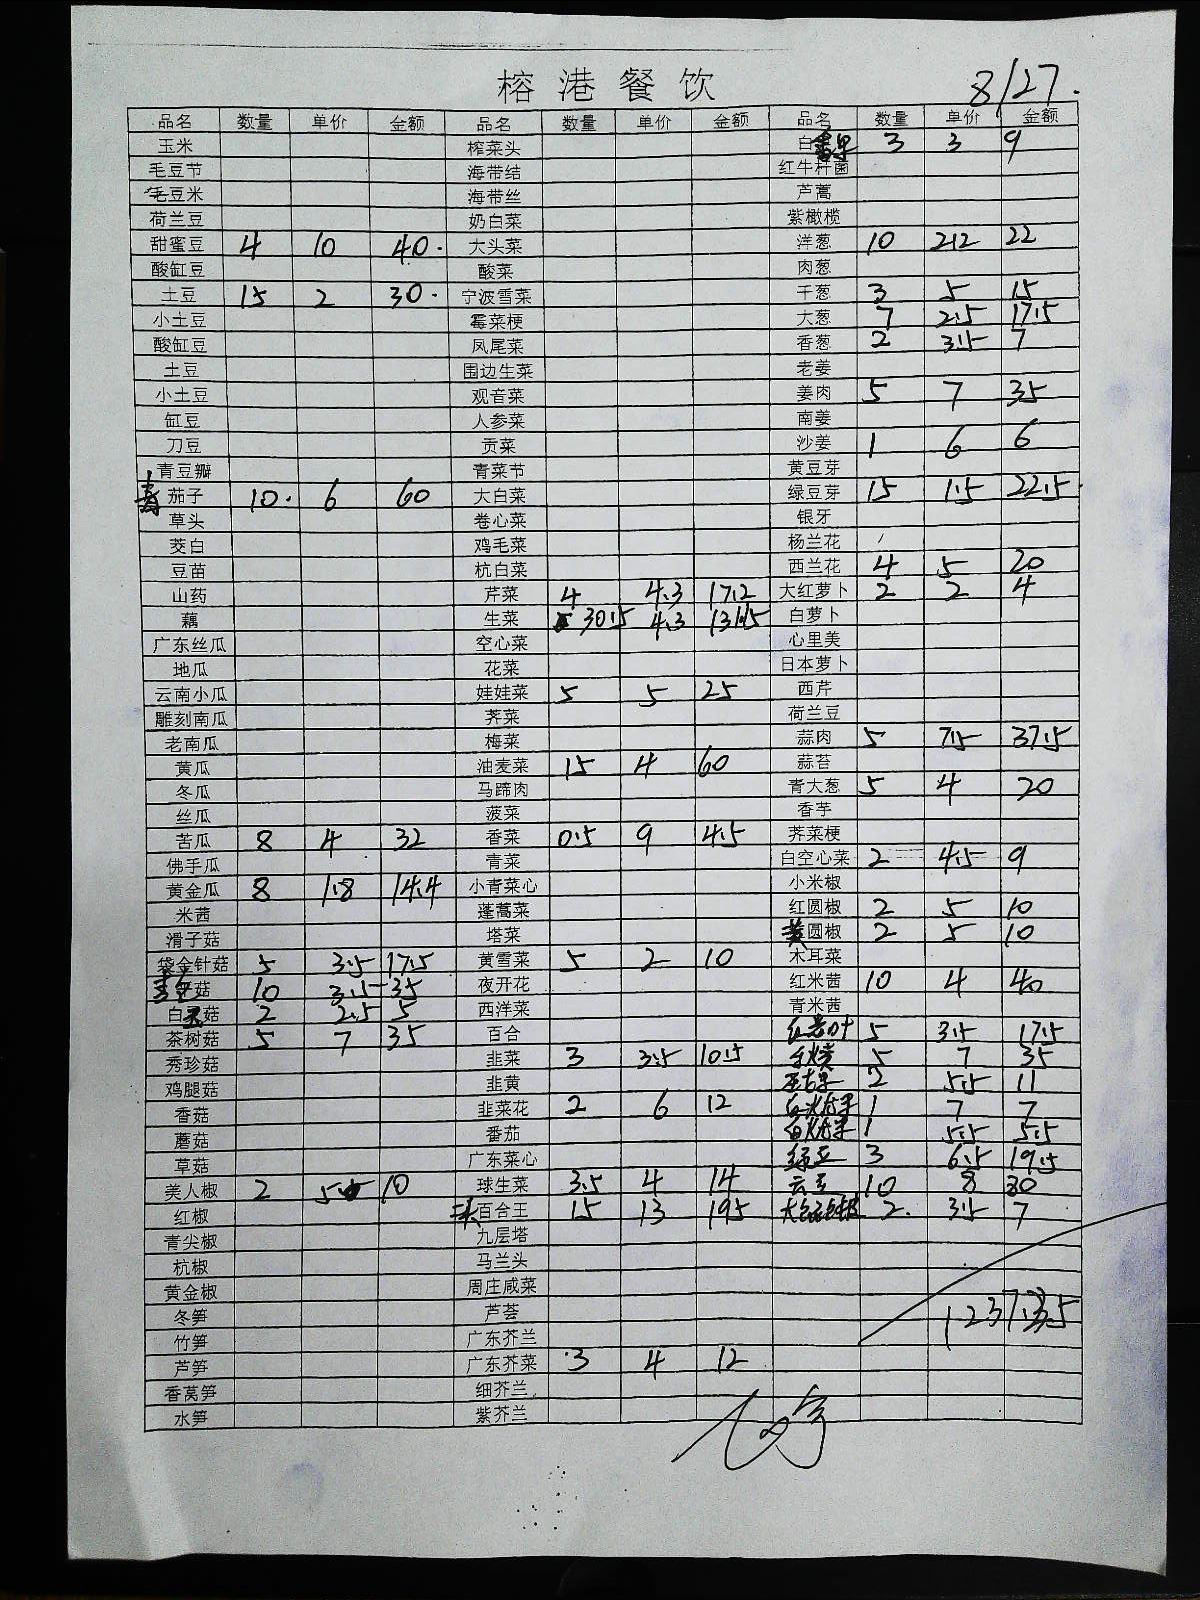 榕港餐饮
8/27.
品名 数量 单价 金额 品名 数量 单价 金额 品名 数量 单价 金额
玉米 榨菜头 白 3 3 9
毛豆节 海带结 红牛杆菌
毛豆米 海带丝 芦蒿
荷兰豆 奶白菜 紫橄榄
甜蜜豆 4 10 40. 大头菜 洋葱 10 2.2 22
酸缸豆 酸菜 肉葱
土豆 15 2 30. 宁波雪菜 干葱 3 5 15
小土豆 霉菜梗 大葱 7 2.5 17.5
酸缸豆 凤尾菜 香葱 2 3.5 7
土豆 围边生菜 老姜
小土豆 观音菜 姜肉 5 7 35
缸豆 人参菜 南姜
刀豆 贡菜 沙姜 1 6 6
青豆瓣 青菜节 黄豆芽
茄子 10. 6 60 大白菜 绿豆芽 15 1.5 22.5.
草头 卷心菜 银牙
茭白 鸡毛菜 杨兰花
豆苗 杭白菜 西兰花 4 5 20
山药 芹菜 4 4.3 17.2 大红萝卜 2 2 4
藕 生菜 30.5 4.3 131.15 白萝卜
广东丝瓜 空心菜 心里美
地瓜 花菜 日本萝卜
云南小瓜 娃娃菜 5 5 25 西芹
雕刻南瓜 荠菜 荷兰豆
老南瓜 梅菜 蒜肉 5 7.5 37.5
黄瓜 油麦菜 15 4 60 蒜苔
冬瓜 马蹄肉 青大葱 5 4 20
丝瓜 菠菜 香芋
苦瓜 8 4 32 香菜 0.5 9 4.5 荠菜梗
佛手瓜 青菜 白空心菜 2 4.5 9
黄金瓜 8 1.8 14.4 小青菜心 小米椒
米茜 蓬蒿菜 红圆椒 2 5 10
滑子菇 塔菜 黄圆椒 2 5 10
袋金针菇 5 3.5 17.5 黄雪菜 5 2 10 木耳菜
菇 10 3.5 35 夜开花 红米茜 10 4 40
白玉菇 2 2.5 5 西洋菜 青米茜
茶树菇 5 7 35 百合 5 3.5 17.5
秀珍菇 韭菜 3 3.5 10.5 5 7 35
鸡腿菇 韭黄 2 5.5 11
香菇 韭菜花 2 6 12 1 7 7
蘑菇 番茄 1 5.5 5.5
草菇 广东菜心 3 6.5 19.5
美人椒 2 5 10 球生菜 3.5 4 14 云豆 10 8 80
红椒 百合王 15 13 195 2. 3.5 7
青尖椒 九层塔
杭椒 马兰头
黄金椒 周庄咸菜
冬笋 芦荟
竹笋 广东芥兰
芦笋 广东芥菜 3 4 12
香莴笋 细芥兰
水笋 紫芥兰